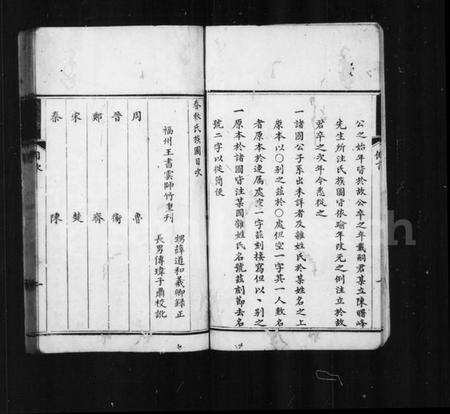 公之始年皆於故公卒之年載嗣君某立陳曙峰
先生所注氏族圖皆依踰年改元之例注立於故
君卒之次年今悉從之
一諸國公子系出未詳者及雜姓氏於某姓名之上
原本以〇別之茲於〇處但空一字其一人數名
者原本於連屬處空一字茲刻接寫但以、別之
一原本於諸國皆注某國雜姓氏名號茲刻節去名
號二字以從簡便
春秋氏族圖目次
福州王書雲師竹重刊
甥薛道和羲卿錄正
長男傳瑋子肅校訛
周 魯
晉 衛
鄭 齊
宋 楚
秦 陳
目次